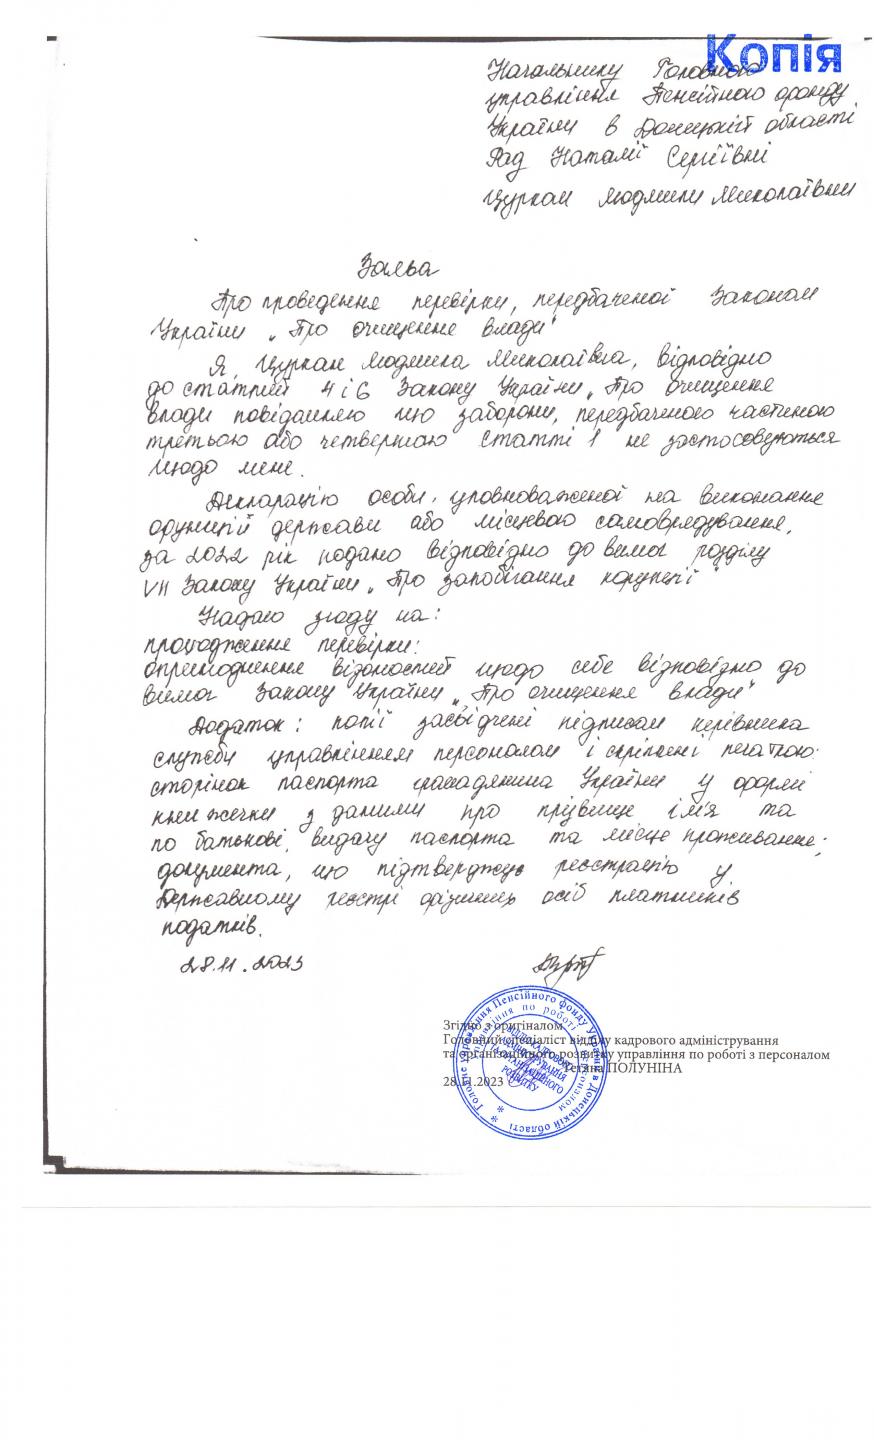 Копія
Начальнику Головного
управління Пенсійного фонду
України в Донецькій області
Рад Наталії Сергіївні
Цуркан Людмили Миколаївни
Заява
Про проведення перевірки, передбаченої Законом
України „Про очищення влади"
Я, Цуркан Людмила Миколаївна, відповідно
до статтей 4 і 6 Закону України „Про очищення
влади повідамляю що заборони, передбаченою частиною
третьою або четвертою статті 1 не застосовуються
щодо мене.
Декларацію особи, уповноваженої на виконання
функцій держави або місцевого самоврядування,
за 2022 рік подано відповідно до вимог розділу
VII Закону України „Про запобігання корупції"
Надаю згоду на:
проходження перевірки:
оприлюднення відомостей щодо себе відповідно до
вимог Закону України „Про очищення влади"
Додаток: копії засвідчені підписом керівника
служби управлінням персоналом і скріплені печаткою:
сторінок паспорта громадянина України у формі
книжечки з даними про прізвище ім'я та
по батькові, видачу паспорта та місце проживання;
документа, що підтверджує реєстрацію у
Державному реєстрі фізичних осіб платників
податків.
28.11.2023
Згідно з оригіналом
Головний спеціаліст відділу кадрового адміністрування
та організаційного розвитку управління по роботі з персоналом
Тетяна ПОЛУНІНА
28.11.2023
Головне управління Пенсійного фонду України в Донецькій області
управління по роботі з персоналом
ВІДДІЛ КАДРОВОГО
АДМІНІСТРУВАННЯ
ТА ОРГАНІЗАЦІЙНОГО
РОЗВИТКУ